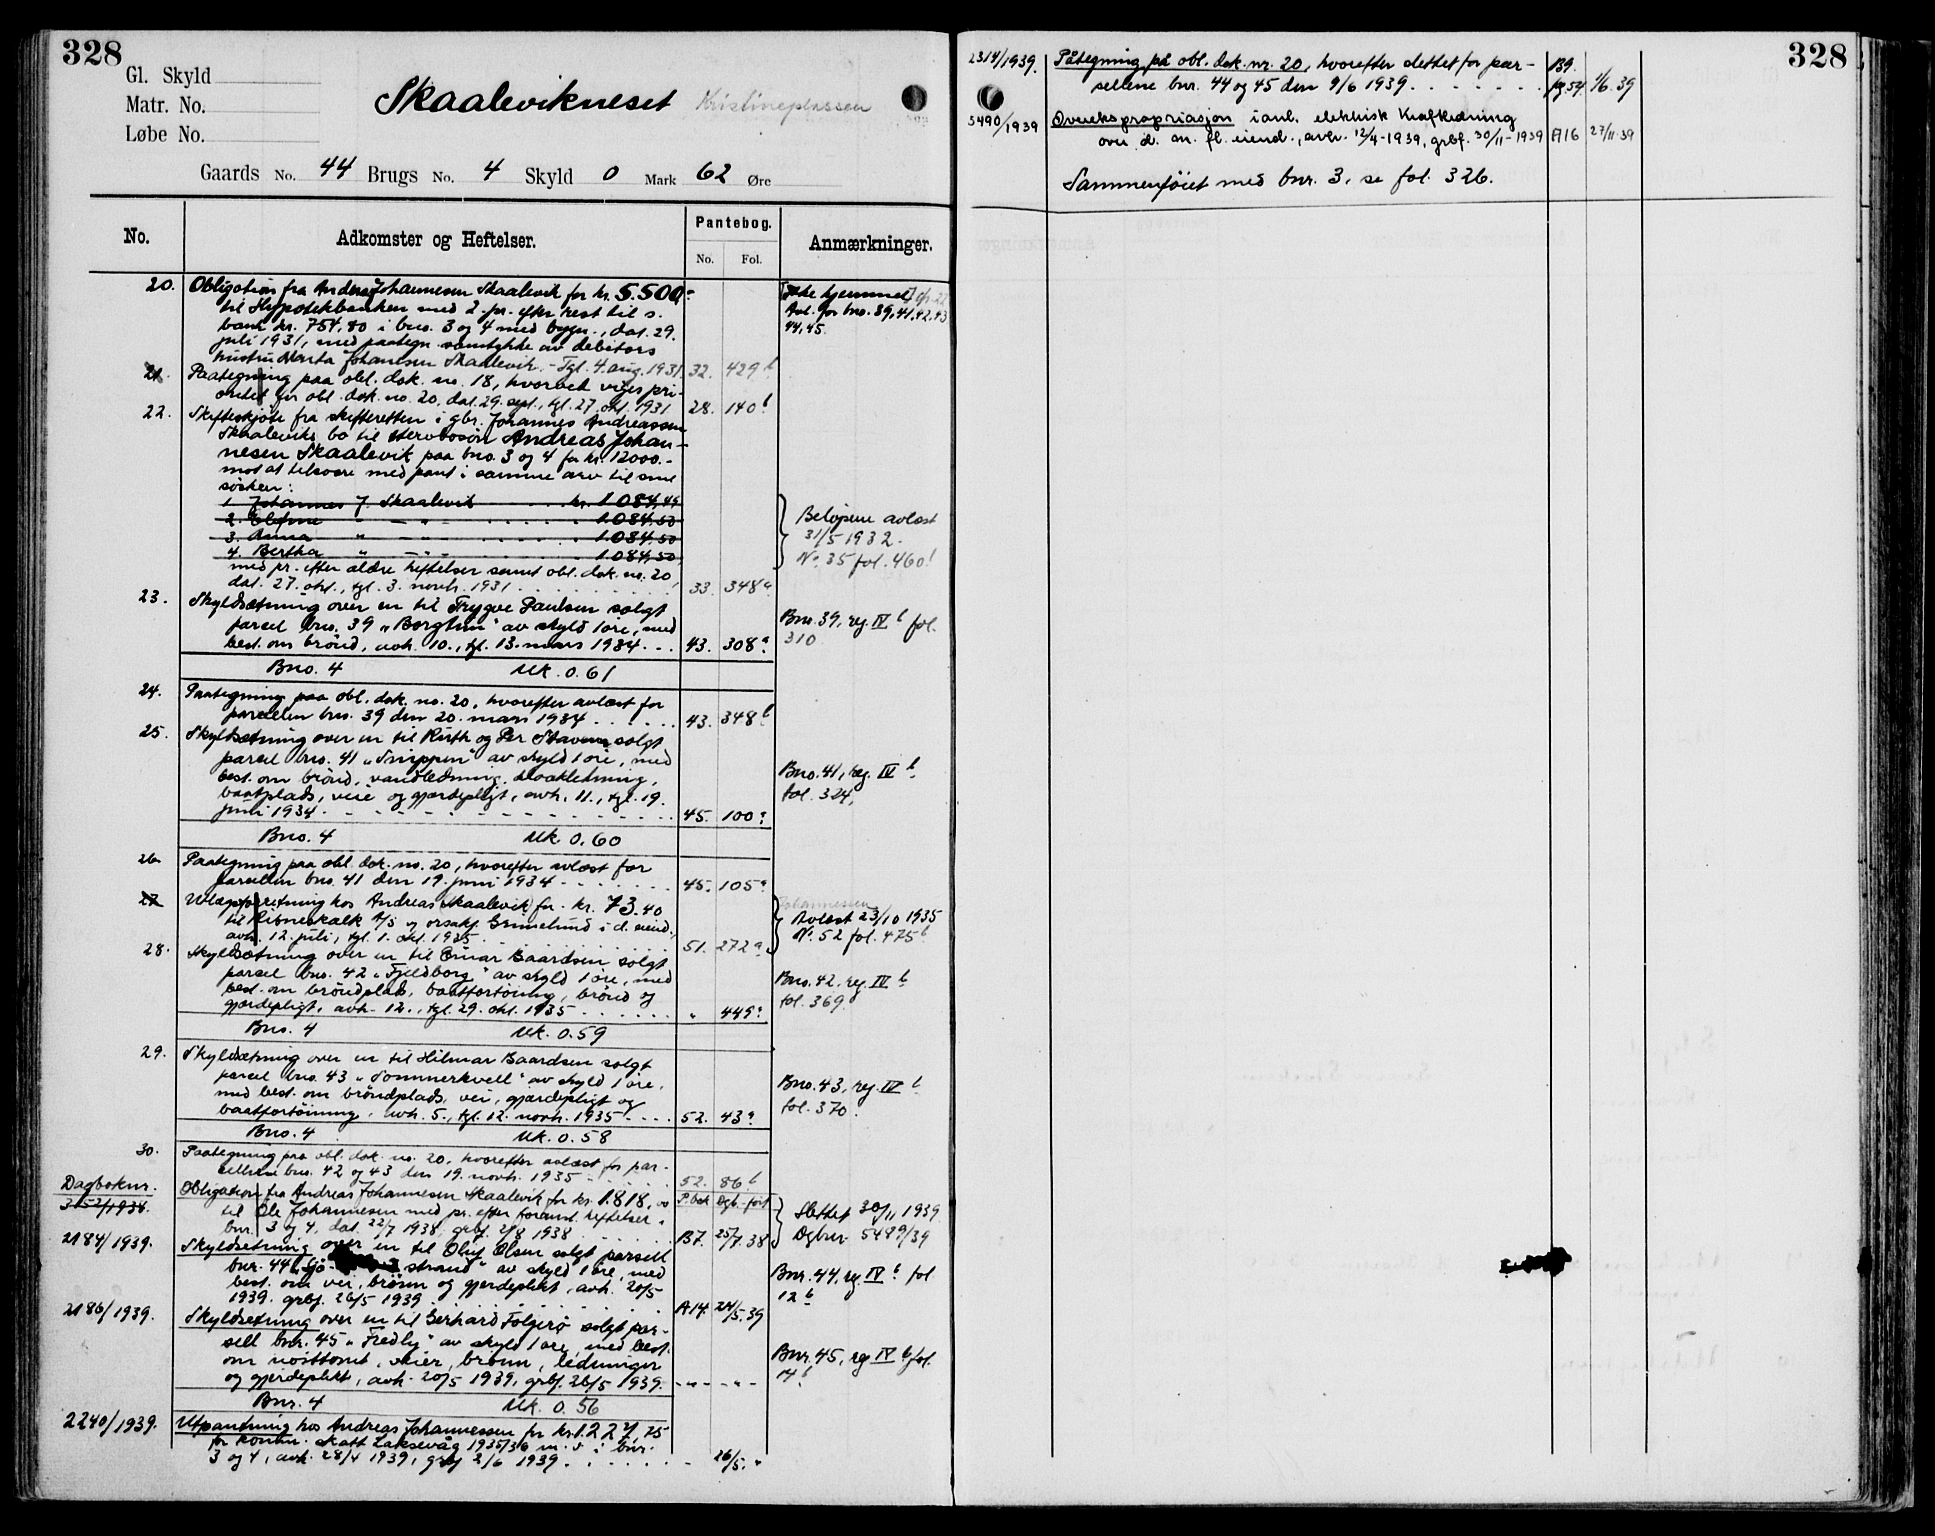 328
Gl. Skyld
Matr. No.
Løbe No.
Skaalevikneset Kristineplassen
Gaards No. 44 Brugs No. 4 Skyld 0 Mark 62 Øre
No. Adkomster og Heftelser. Pantebog. Anmærkninger.
No. Fol.
20. Obligation fra Andreas Johannesen Skaalevik for kr. 5.500,-
til Hypotekbanken med 2. pr. efter rest til s.
bank kr. 754,80 i bno. 3 og 4 med bygn., dat. 29.
juli 1931, med paategn. samtykke av debitors
hustru Marta Johannesen Skaalevik. - Tgl. 4. aug. 1931. 32. 429 b
Ikke hjemmel
Avl. for bno. 39, 41, 42, 43
44, 45.
21. Paategning paa obl. dok. no. 18, hvorved viges pri-
oritet for obl. dok. no. 20, dat. 29. sept., tgl. 27. okt. 1931 28. 140 b
22. Skifteskjøte fra skifteretten i gbr. Johannes Andreassen
Skaaleviks bo til stervbosøn Andreas Johan-
nesen Skaalevik paa bno. 3 og 4 for kr. 12000.-
mot at tilsvare med pant i samme arv til sine
søsken:
1. Johannes J. Skaalevik kr. 1084,45
2. Elefine " - " - 1084.50
3. Anna " - " - 1084.50
4. Bertha " - " - 1084,50,
med pr. efter ældre heftelser samt obl. dok. no. 20,
dat. 27. okt., tgl. 3. novbr. 1931 33. 348 a
Beløpene avlæst
31/5 1932.
No. 35 fol. 460 b
23. Skyldsætning over en til Trygve Paulsen solgt
parsel bno. 39 "Borgtun" av skyld 1 øre, med
best. om brønd, avh. 10., tgl. 13. mars 1934 43. 308 a
Bno. 39, reg. IV b fol.
310
Bno. 4 Mk. 0.61
24. Paategning paa obl. dok. no. 20, hvorefter avlæst for
parcellen bno. 39 den 20. mars 1934 43. 348 b
25. Skyldsætning over en til Ruth og Per Stavenes solgt
parcel bno. 41 "Snippen" av skyld 1 øre, med
best. om brønd, vandledning, kloakledning,
baatplads, veie og gjærdepligt, avh. 11., tgl. 19.
juni 1934 45. 100 a
Bno. 41, reg. IV b
fol. 324,
Bno. 4 Mk 0.60
26. Paategning paa obl. dok. no. 20, hvorefter avlæst for
parcellen bno. 41 den 19. juni 1934 45. 105 a
27. Utlægsforretning hos Andreas Skaalevik for kr. 73.40
til A/S og orsakf. Grimelund i d. eiend.
avh. 12. juli, tgl. 1. okt. 1935 51. 272 a
Johannessen
Avlæst 23/10 1935
No. 52 fol. 475 b
28. Skyldsætning over en til Einar Baardsen solgt
parcel bno. 42 "Fjeldborg" av skyld 1 øre, med
best. om brøndplads, baatfortøining, brønd og
gjærdepligt, avh. 12., tgl. 29. okt. 1935 " 449 a
Bno. 42, reg. IV b
fol. 369
Bno. 4 Mk. 0.59
29. Skyldsætning over en til Hilmar Baardsen solgt
parcel bno. 43 "Sommerkvell" av skyld 1 øre,
med best. om brøndplads, vei, gjærdepligt og
baatfortøining, avh. 5., tgl. 12. novbr. 1935 52. 43 a
Bno. 43, reg. IV b
fol. 370
Bno. 4 Mk. 0.58
30. Paategning paa obl. dok. no. 20, hvorefter avlæst for par-
cellene bno. 42 og 43 den 19. novbr. 1935 52. 86 b
Dagboknr. P. bok Dgb.-ført
3152/1938. Obligation fra Andreas Johannesen Skaalevik for kr. 1.818,00
til Ole Johannesen med pr. efter forannst. heftelser i
bnr. 3 og 4, dat. 22/7 1938, grbf. 2/8 1938 B7. 25/7.38
Slettet 30/11 1939
Dgbnr. 5489/39
2184/1939. Skyldsetning over en til Oluf Olsen solgt parsell
bnr. 44 strand" av skyld 1 øre, med
best. om vei, brønn og gjerdeplikt, avh. 20/5
1939. grbf. 26/5 1939 A14. 24/5.39
Bnr. 44, reg. IV b fol
12 b
2186/1939. Skyldsetning over en til Gerhard Folgerø solgt par-
sell bnr. 45 "Fredly" av skyld 1 øre, med best.
om nøsttomt, veier, brønn, ledninger
og gjerdeplikt, avh. 20/5 1939, grbf. 26/5 1939. - " - - " -
Bnr. 45, reg IV b fol.
14 b
Bnr. 4 Mk. 0.56
2240/1939. Utpantning hos Andreas Johannessen for kr. 1.227,75
for komm. skatt Laksevåg 1935/36 m. v. i bnr.
3 og 4, avh. 28/4 1939, grbf 2/6 1939 - 26/5. "
328
2314/1939. Påtegning på obl. dok. nr. 20, hvorefter slettet for par-
sellene bnr. 44 og 45 den 9/6 1939 B9. pg. 54 1/6.39
5490/1939 Overekspropriasjon i anl. elektrisk kraftledning
over d. an. fl. eiend., avh. 12/4-1939, grbf. 30/11-1939 A16 27/11 39
Sammenføiet med bnr. 3, se fol. 326.